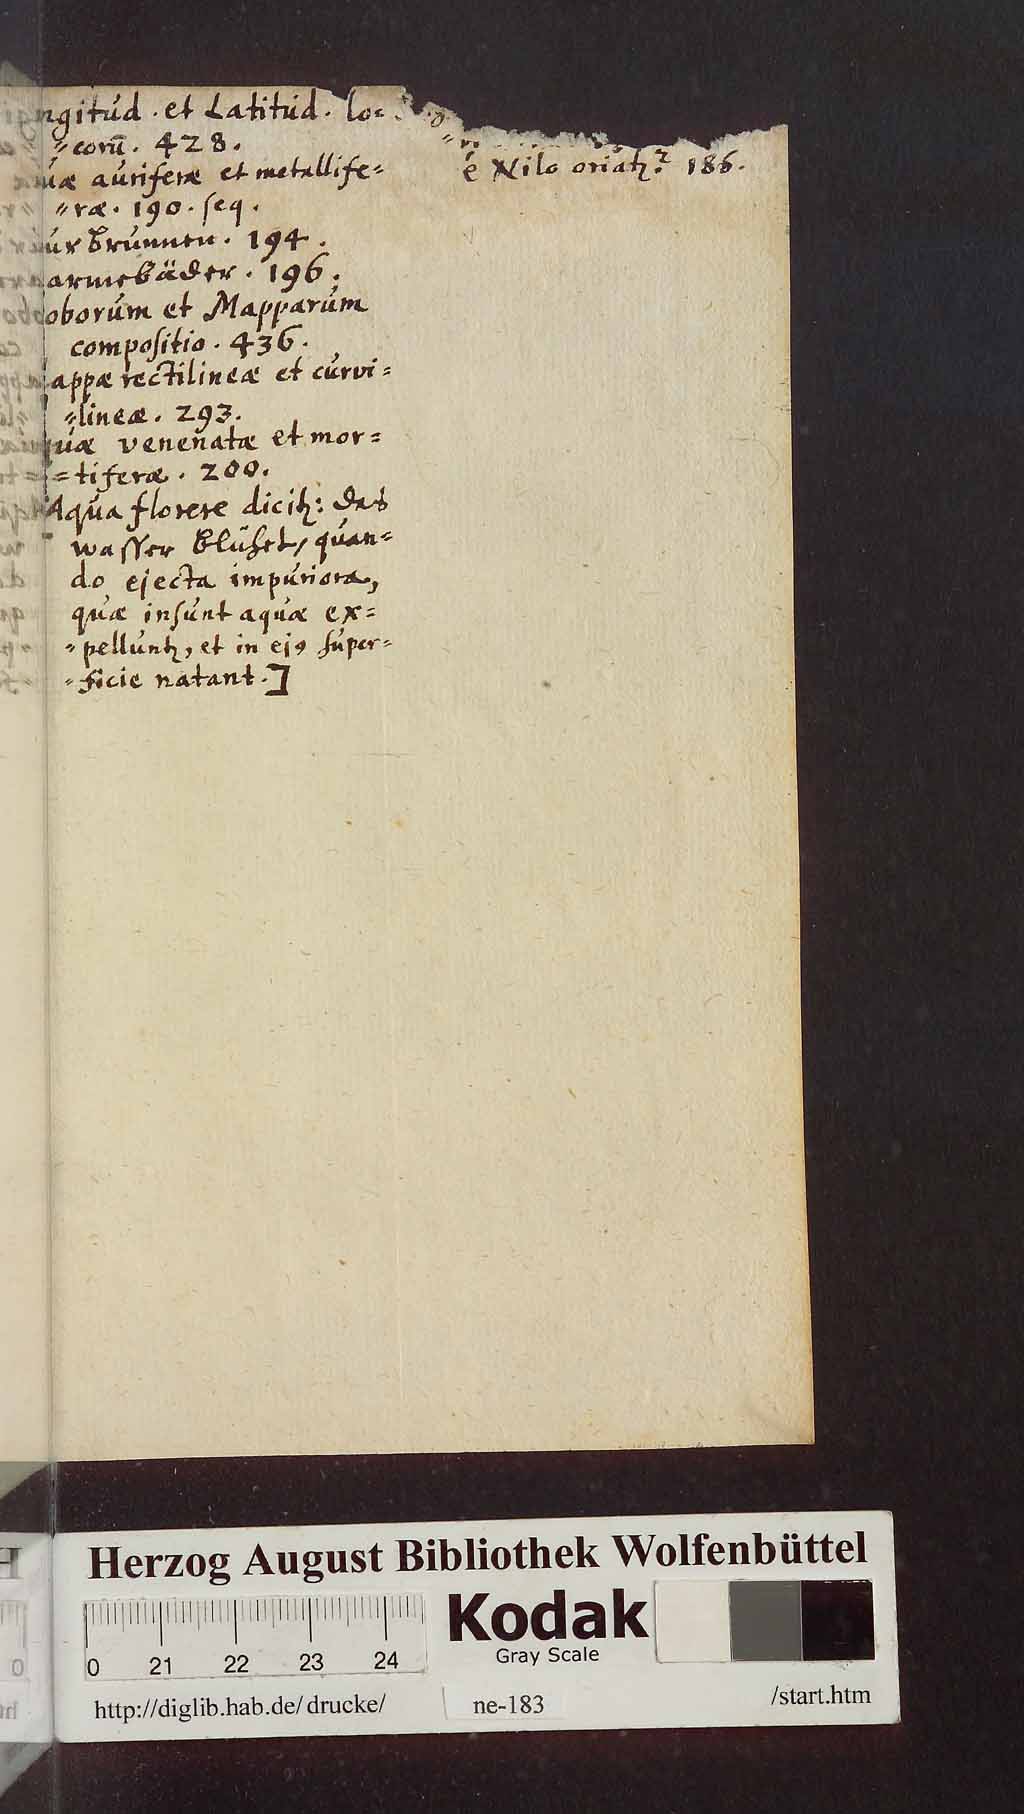 ngitud. et Latitud. lo=
=corũ. 428.
uæ auriferæ et metallife=
=ræ. 190. seq.
ur Brunnen. 194.
armebäder. 196.
oborum et Mapparum
compositio. 436.
appæ rectilineæ et curvi=
=lineæ. 293.
uæ venenatæ et mor=
=tiferæ. 200.
Aqua florere dicitꝛ: das
wasser blühet, quan=
do ejecta impuriora,
quæ insunt aquæ ex=
=pelluntꝛ, et in ejꝰ super=
=ficie natant.]
è Nilo oriatꝛ? 186.
Herzog August Bibliothek Wolfenbüttel
Kodak
Gray Scale
0 21 22 23 24
http://diglib.hab.de/drucke/ ne-183 /start.htm